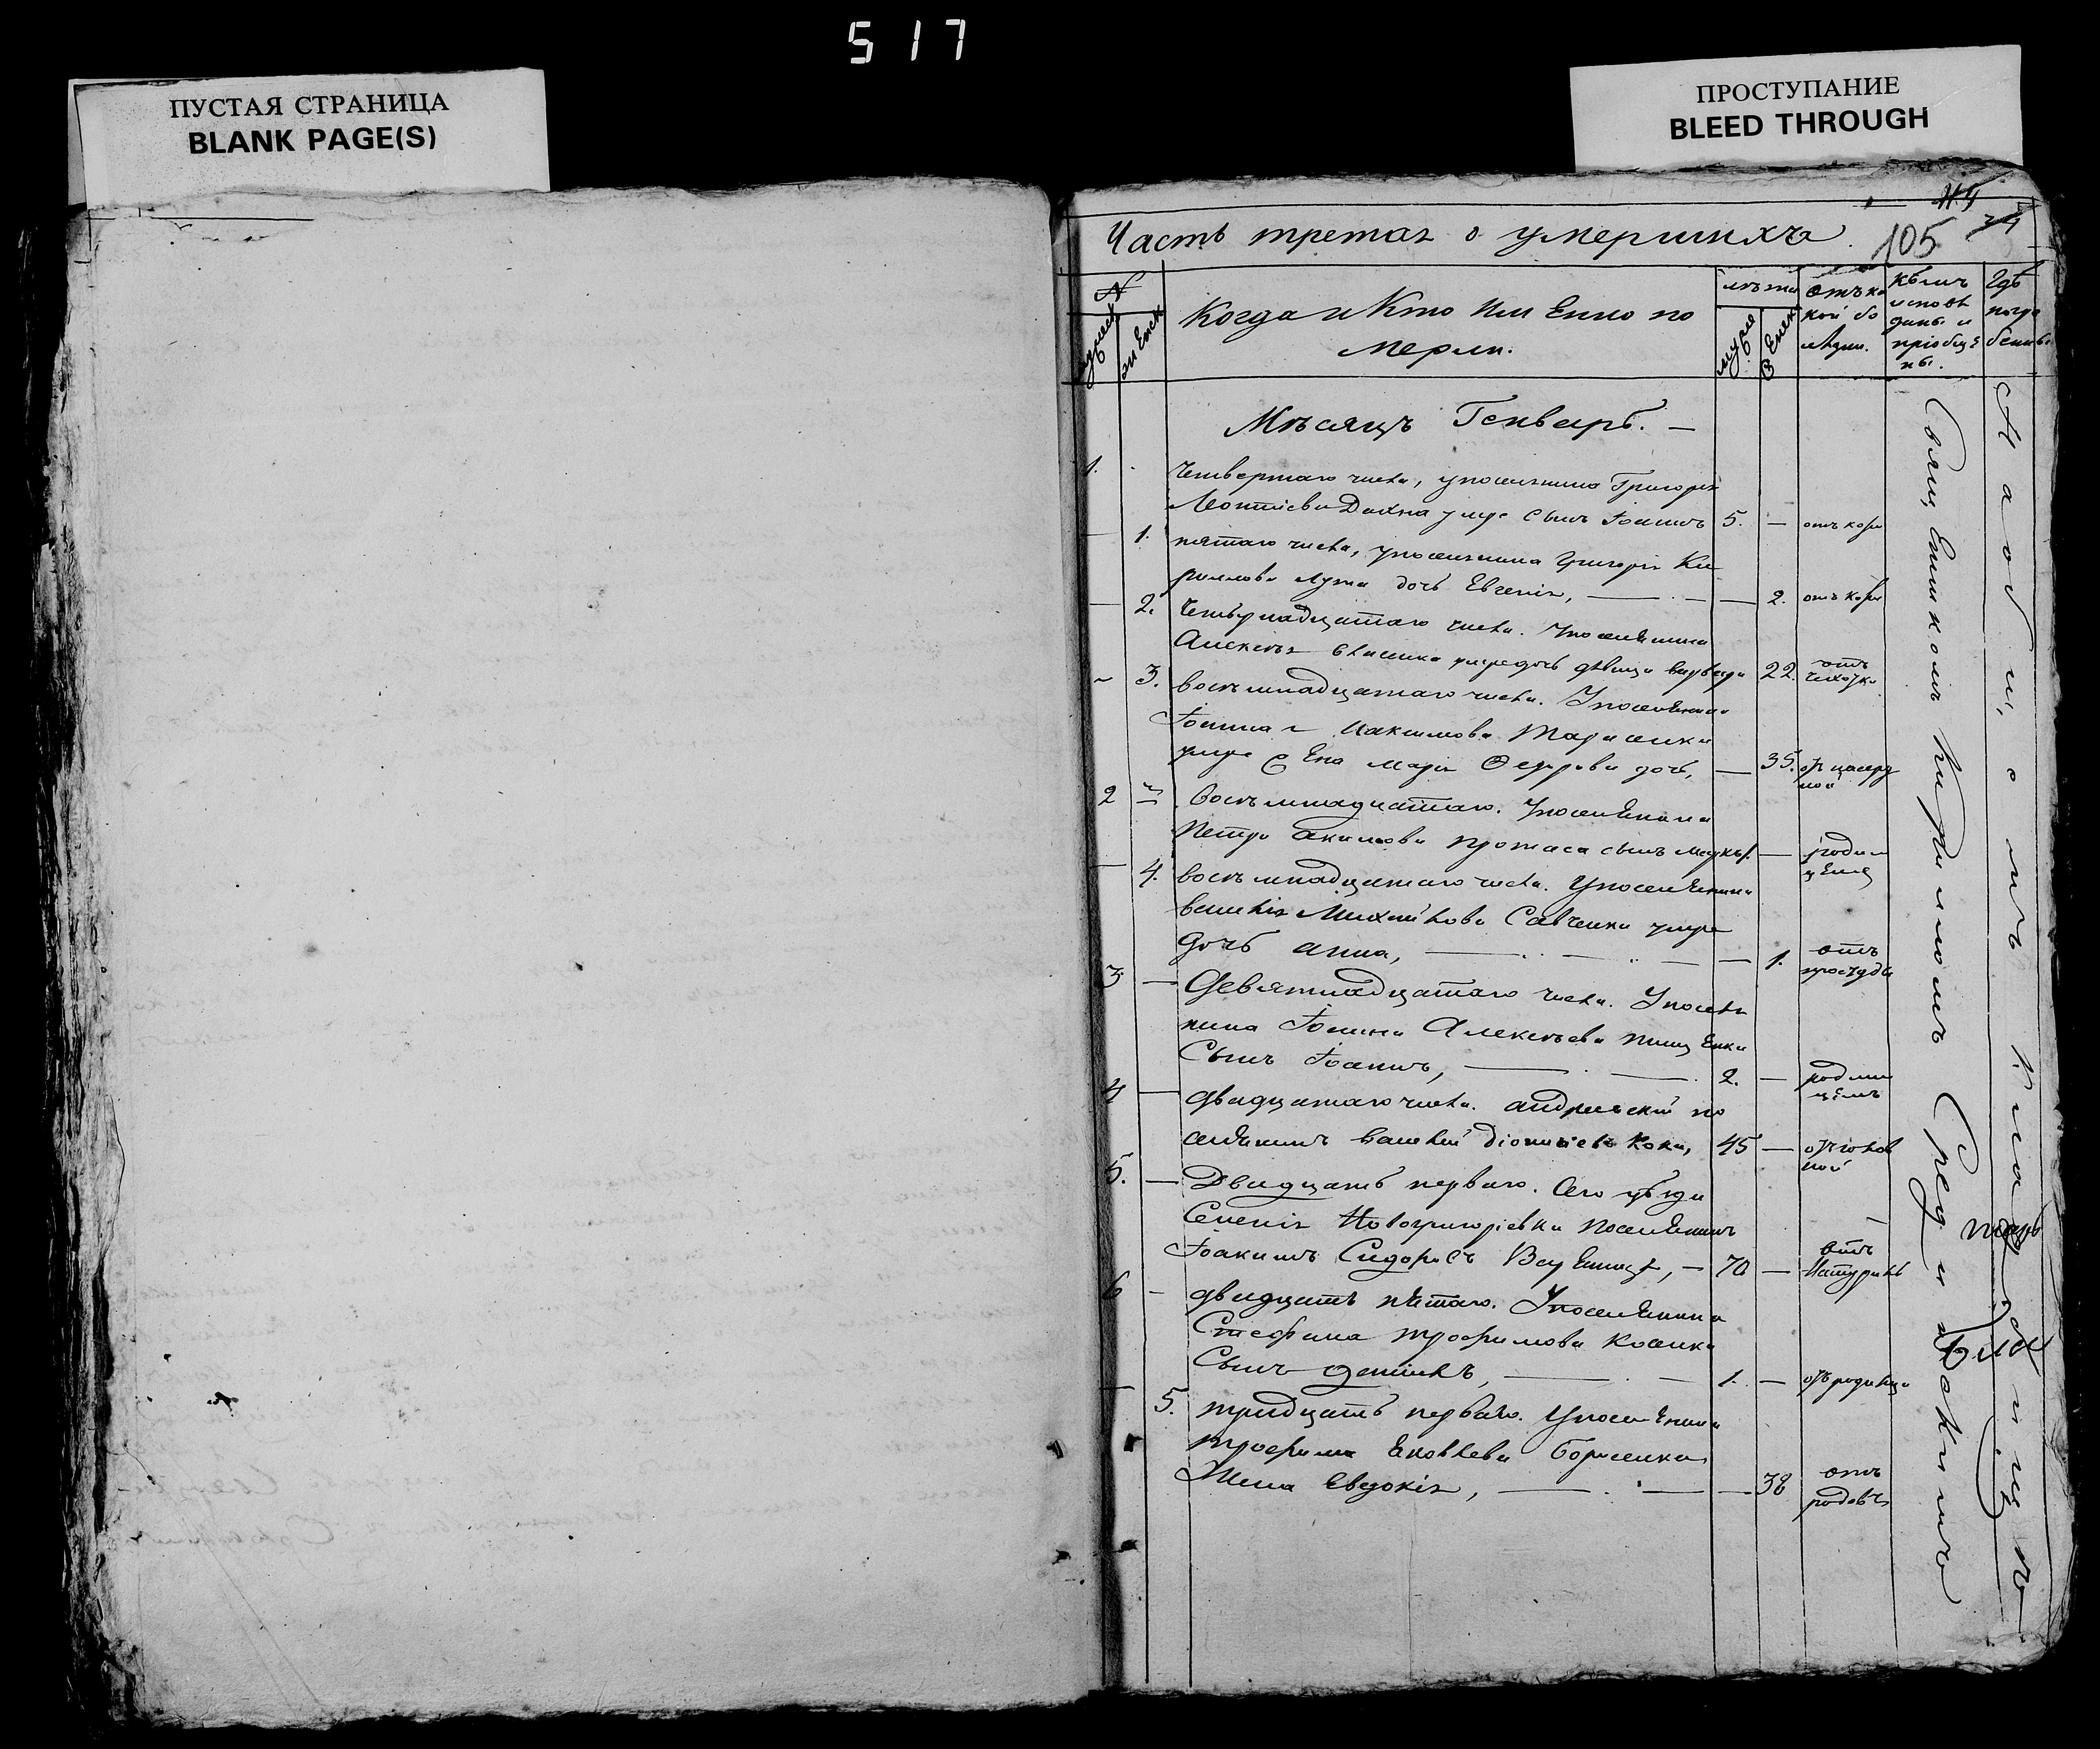 517
ПУСТАЯ СТРАНИЦА
BLANK PAGE(S)
ПРОСТУПАНИЕ
BLEED THROUGH
Часть третая о умершихъ.
105
№
мужеск
женск
Когда и Кто Именно по
мерли.
лѣта
муже
женс
Отъ ка
кой бо
лѣзни.
Кѣмъ
исповѣ
даны и
пріобще
ны.
Гдѣ
погре
бенны
Мѣсяцъ Генварь. —
1.
Четвертаго числа, упоселянина Григорія
Леонтіева Дахна умре сынъ Іоаннъ 5. — отъ кори
— 1. пятаго числа, упоселянина Григорія Ки
рилова дочь Евгенія, — — 2. отъ кори
— 2. Четырнадцатаго числа. Упоселянина
Алексѣя умре дочь дѣвица 22. отъ
чахотки
3. восемнадцатаго числа. Упоселянина
Іоанна Максимова Тарасенка
умре Жена Марія Федорова дочь, — 35.
2 — восемнадцатаго. Упоселянина
Петра Акимова Протаса сынъ — родим
цемъ
— 4. восемнадцатаго числа. Упоселянина
василія Михайлова Савченка умре
дочь анна, — — 1. отъ
простуды
3 — Девятнадцатаго числа. Упоселя
нина Іоанна Алексѣева
Сынъ Іоаннъ, — 2. — родим
цемъ
4 — двадцатаго числа. андреевскій по
селянинъ василій діонисіевъ Кока, 45 — отъ голов
ной
5. — Двадцать перваго. уѣзда
Селенія Новогригоріевки поселянинъ
Іоакимъ Сидоровъ — 70 — отъ
натурины
6 — двадцать пятаго. Упоселянина
Стефана трофимова Косенка
Сынъ — 1. — отъ родимца
— 5. тридцать перваго. Упоселянина
трофима Яковлева Борисенка
Жена Евдокія, — — 38 отъ
родовъ
Священникомъ Кирилломъ
На общемъ кладбищѣ